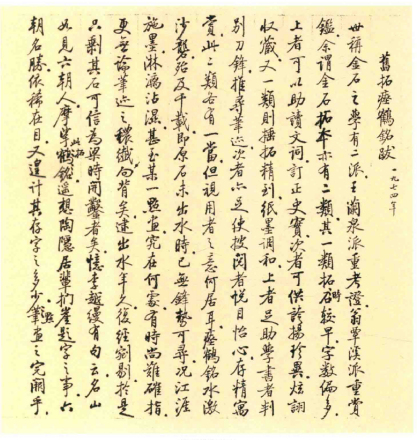 舊拓瘞鶴銘跋
一九七四年
世稱金石之學有二派王蘭泉派重考證翁覃溪派重賞
鑑余謂金石拓本亦有二類其一類拓石時較早字數偏多
上者可以助讀文詞訂正史實次者可供誇揚珍異炫詡
收藏又一類則搥拓精到紙墨調和上者足助學書者判
別刀鋒推尋筆迹次者亦足使披閱者悅目怡心存精寓
賞此二類各有一當但視用者之意何居耳瘞鶴銘水激
沙礱殆及千載即原石未出水時已無鋒勢可尋況江涯
施墨淋漓沾濕甚至某一點畫究在何處有時尚難確指
更無論筆迹之穠纖向背矣逮出水年久後經剜剔於是
只剩其石可信為梁時開鑿者矣憶李越縵有句云名山
如見六朝人摩挲此拓鶴銘遙想陶隱居輩捫崖題字之事六
朝名勝依稀在目又遑計其存字之多少點畫之完闕乎